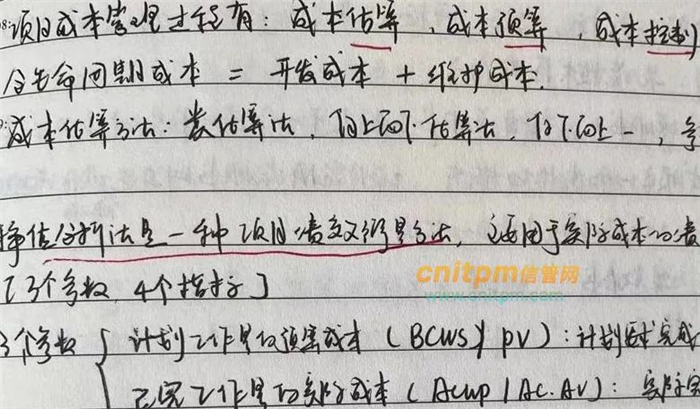 08:项目成本管理过程有:成本估算、成本预算 成本控制
全生命周期成本 = 开发成本 + 维护成本.
成本估算方法:类估算法,自上而下估算法,自下而上一,参
挣值分析法是一种项目 方法,适用于实际成本
[3个参数,4个指标]
cnitpm信管网
www.cnitpm.com
3个参数 { 计划工作量的预算成本(BCWS)/PV):计划时完成
已完工作量的实际成本(ACWP/AC.AV):实际